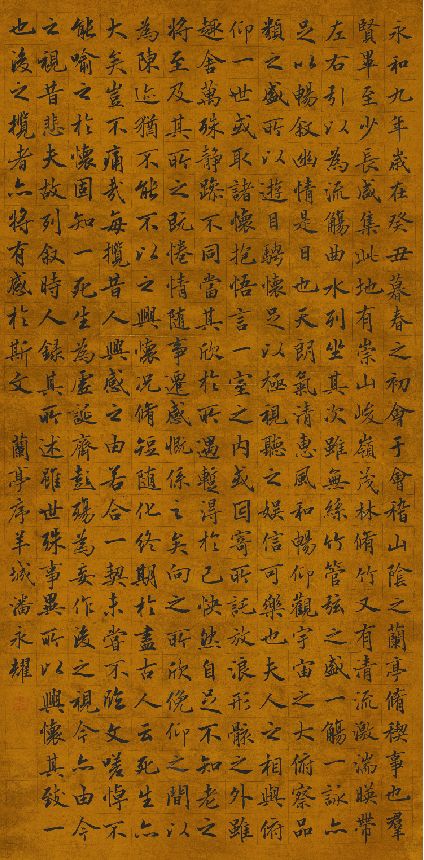 永和九年歲在癸丑暮春之初會于會稽山陰之蘭亭脩稧事也羣
賢畢至少長咸集此地有崇山峻嶺茂林脩竹又有清流激湍暎帶
左右引以為流觴曲水列坐其次雖無絲竹管弦之盛一觴一詠亦
足以暢敘幽情是日也天朗氣清惠風和暢仰觀宇宙之大俯察品
類之盛所以遊目騁懷足以極視聽之娛信可樂也夫人之相與俯
仰一世或取諸懷抱悟言一室之內或因寄所託放浪形骸之外雖
趣舍萬殊静躁不同當其欣於所遇蹔得於己怏然自足不知老之
將至及其所之既惓情隨事遷感慨係之矣向之所欣俛仰之間以
為陳迹猶不能不以之興懷况脩短隨化終期於盡古人云死生亦
大矣豈不痛哉每攬昔人興感之由若合一契未嘗不臨文嗟悼不
能喻之於懷固知一死生為虛誕齊彭殤為妄作後之視今亦由今
之視昔悲夫故列敘時人錄其所述雖世殊事異所以興懷其致一
也後之攬者亦將有感於斯文 蘭亭序羊城潘永耀